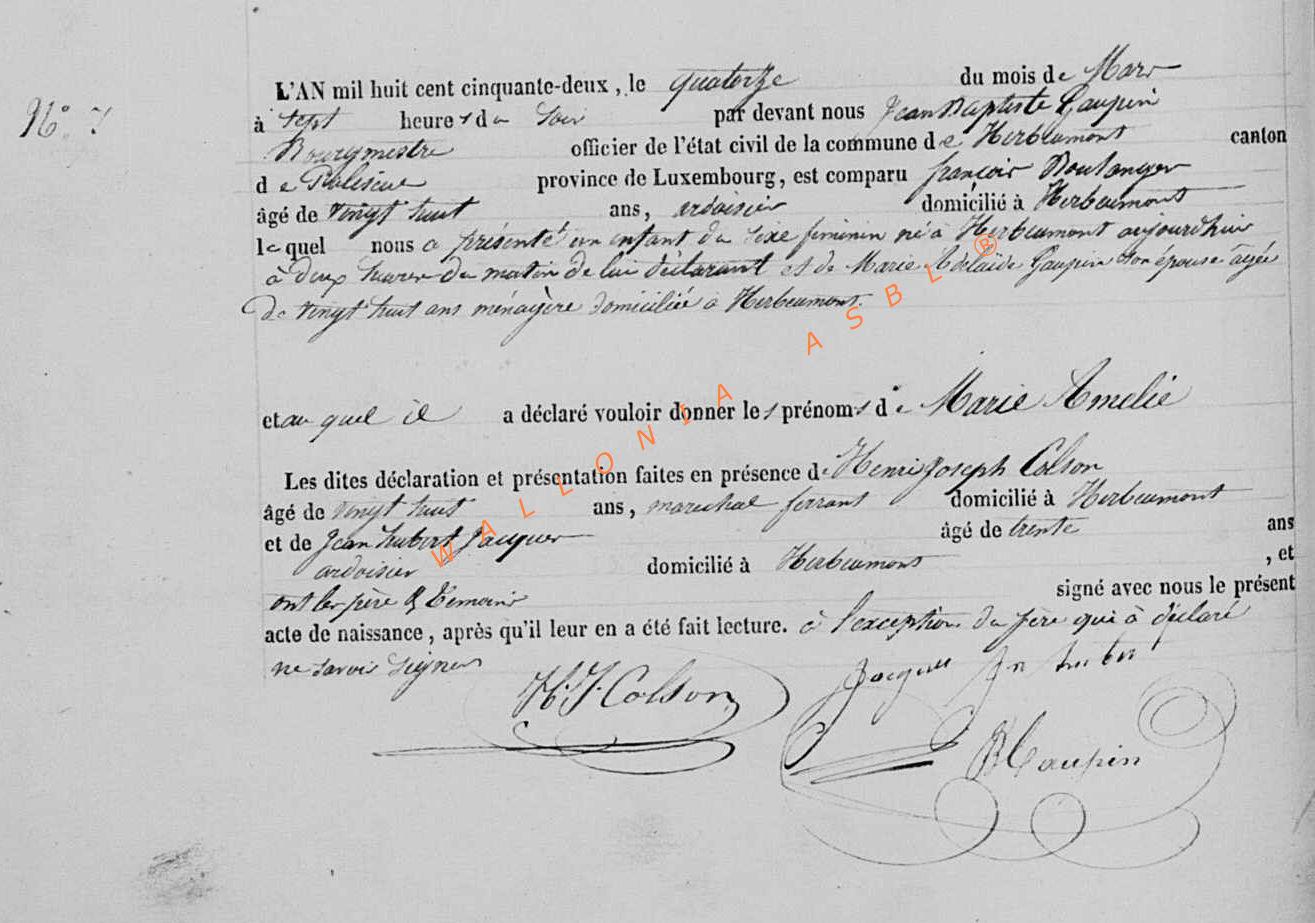 N° 7
L'AN mil huit cent cinquante-deux, le quatorze du mois de Mars
à sept heures du soir par devant nous Jean Baptiste Gaupin
Bourgmestre officier de l'état civil de la commune de Herbeumont canton
de Paliseul province de Luxembourg, est comparu françois Boulanger
âgé de vingt huit ans, ardoisier domicilié à Herbeumont
lequel nous a présenté un enfant du sexe feminin né à Herbeumont aujourdhui
à deux heures du matin de lui déclarant et de Marie Adelaïde Gaupin son épouse agée
de vingt huit ans ménagère domiciliée à Herbeumont.
et au quel il a déclaré vouloir donner les prénoms de Marie Amelie
Les dites déclaration et présentation faites en présence de Henri Joseph Colson
âgé de vingt huit ans, marechal ferrant domicilié à Herbeumont
et de Jean hubert Jacques âgé de trente ans
ardoisier domicilié à Herbeumont, et
ont les père & témoins signé avec nous le présent
acte de naissance, après qu'il leur en a été fait lecture. à l'exception du père qui à déclaré
ne savoir signer
H. J. Colson Jacques Jn hubert
JB Gaupin
WALLONIA ASBL ®